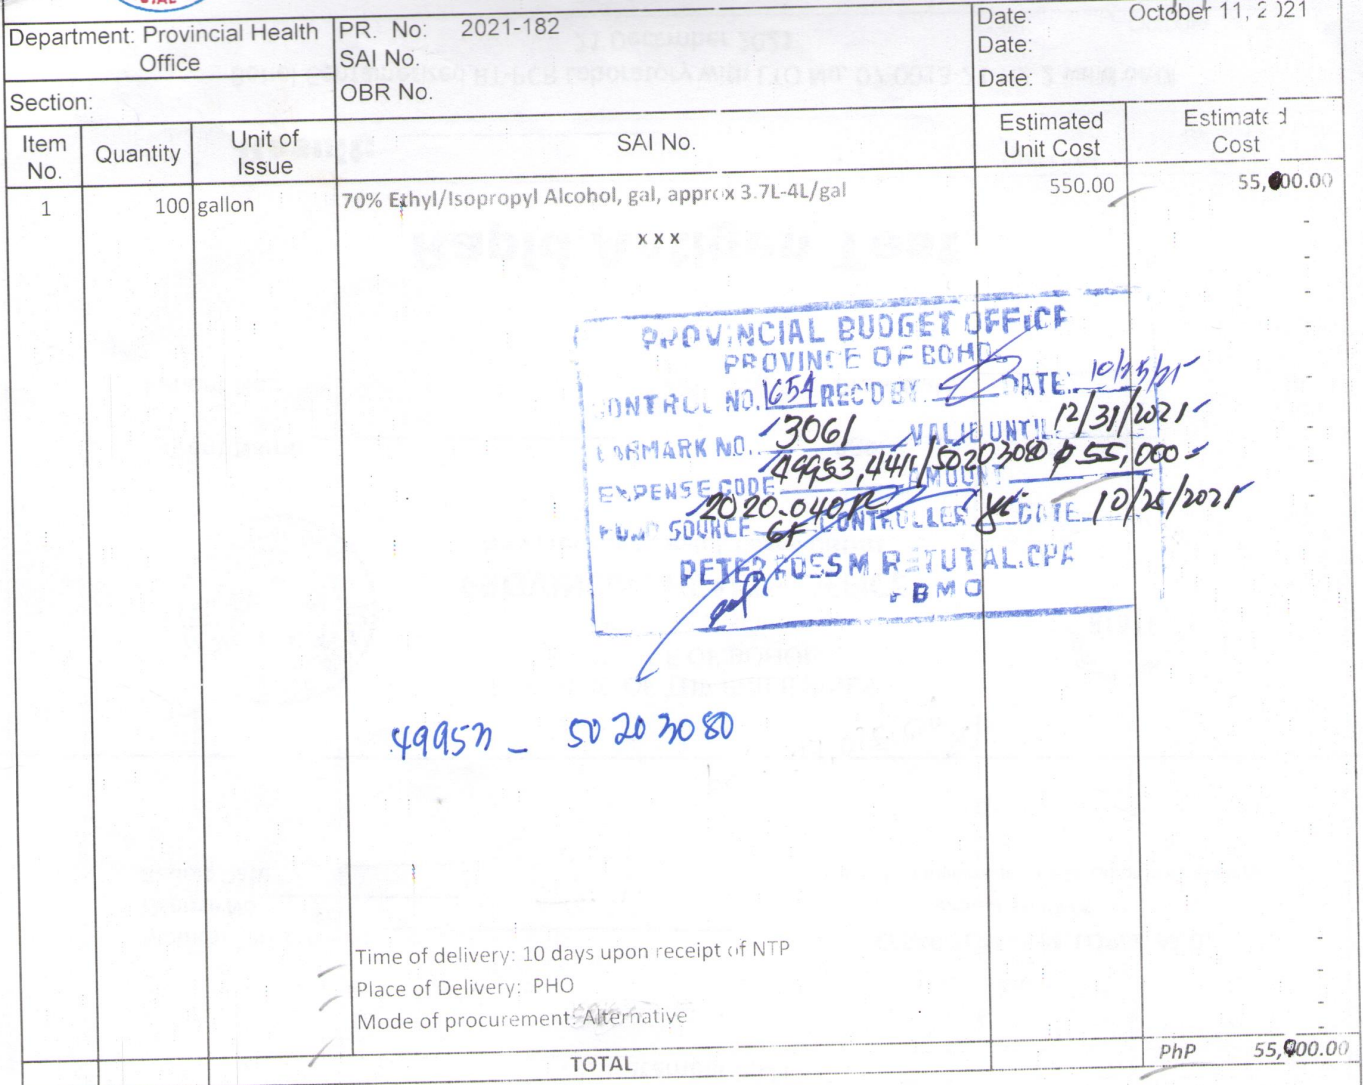 Department: Provincial Health Office
PR. No: 2021-182
SAI No.
OBR No.
Date: October 11, 2021
Date:
Date:
Section:
Item No.
Quantity
Unit of Issue
SAI No.
Estimated Unit Cost
Estimated Cost
1 100 gallon 70% Ethyl/Isopropyl Alcohol, gal, approx 3.7L-4L/gal 550.00 55,000.00
x x x
PROVINCIAL BUDGET OFFICE
PROVINCE OF BOHOL
CONTROL NO. 1654 REC'D BY DATE: 10/25/21
EARMARK NO. 3061 VALID UNTIL 12/31/2021
EXPENSE CODE 49953,4411/50203080 AMOUNT ₱55,000
2020-040
FUND SOURCE GF CONTROLLER DATE 10/25/2021
PETER ROSS M. RETUTAL, CPA
PBMO
49953 - 50203080
Time of delivery: 10 days upon receipt of NTP
Place of Delivery: PHO
Mode of procurement: Alternative
TOTAL PhP 55,000.00